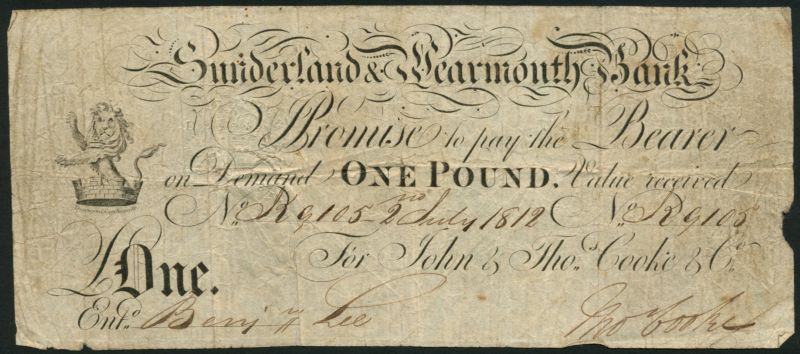 Sunderland & Wearmouth Bank
I Promise to pay the Bearer
on Demand ONE POUND. Value received
No. R9105 2nd July 1812 No. R9105
For John & Thos. Cooke & Co.
£One.
Entd. Benjn Lee Thos Cooke